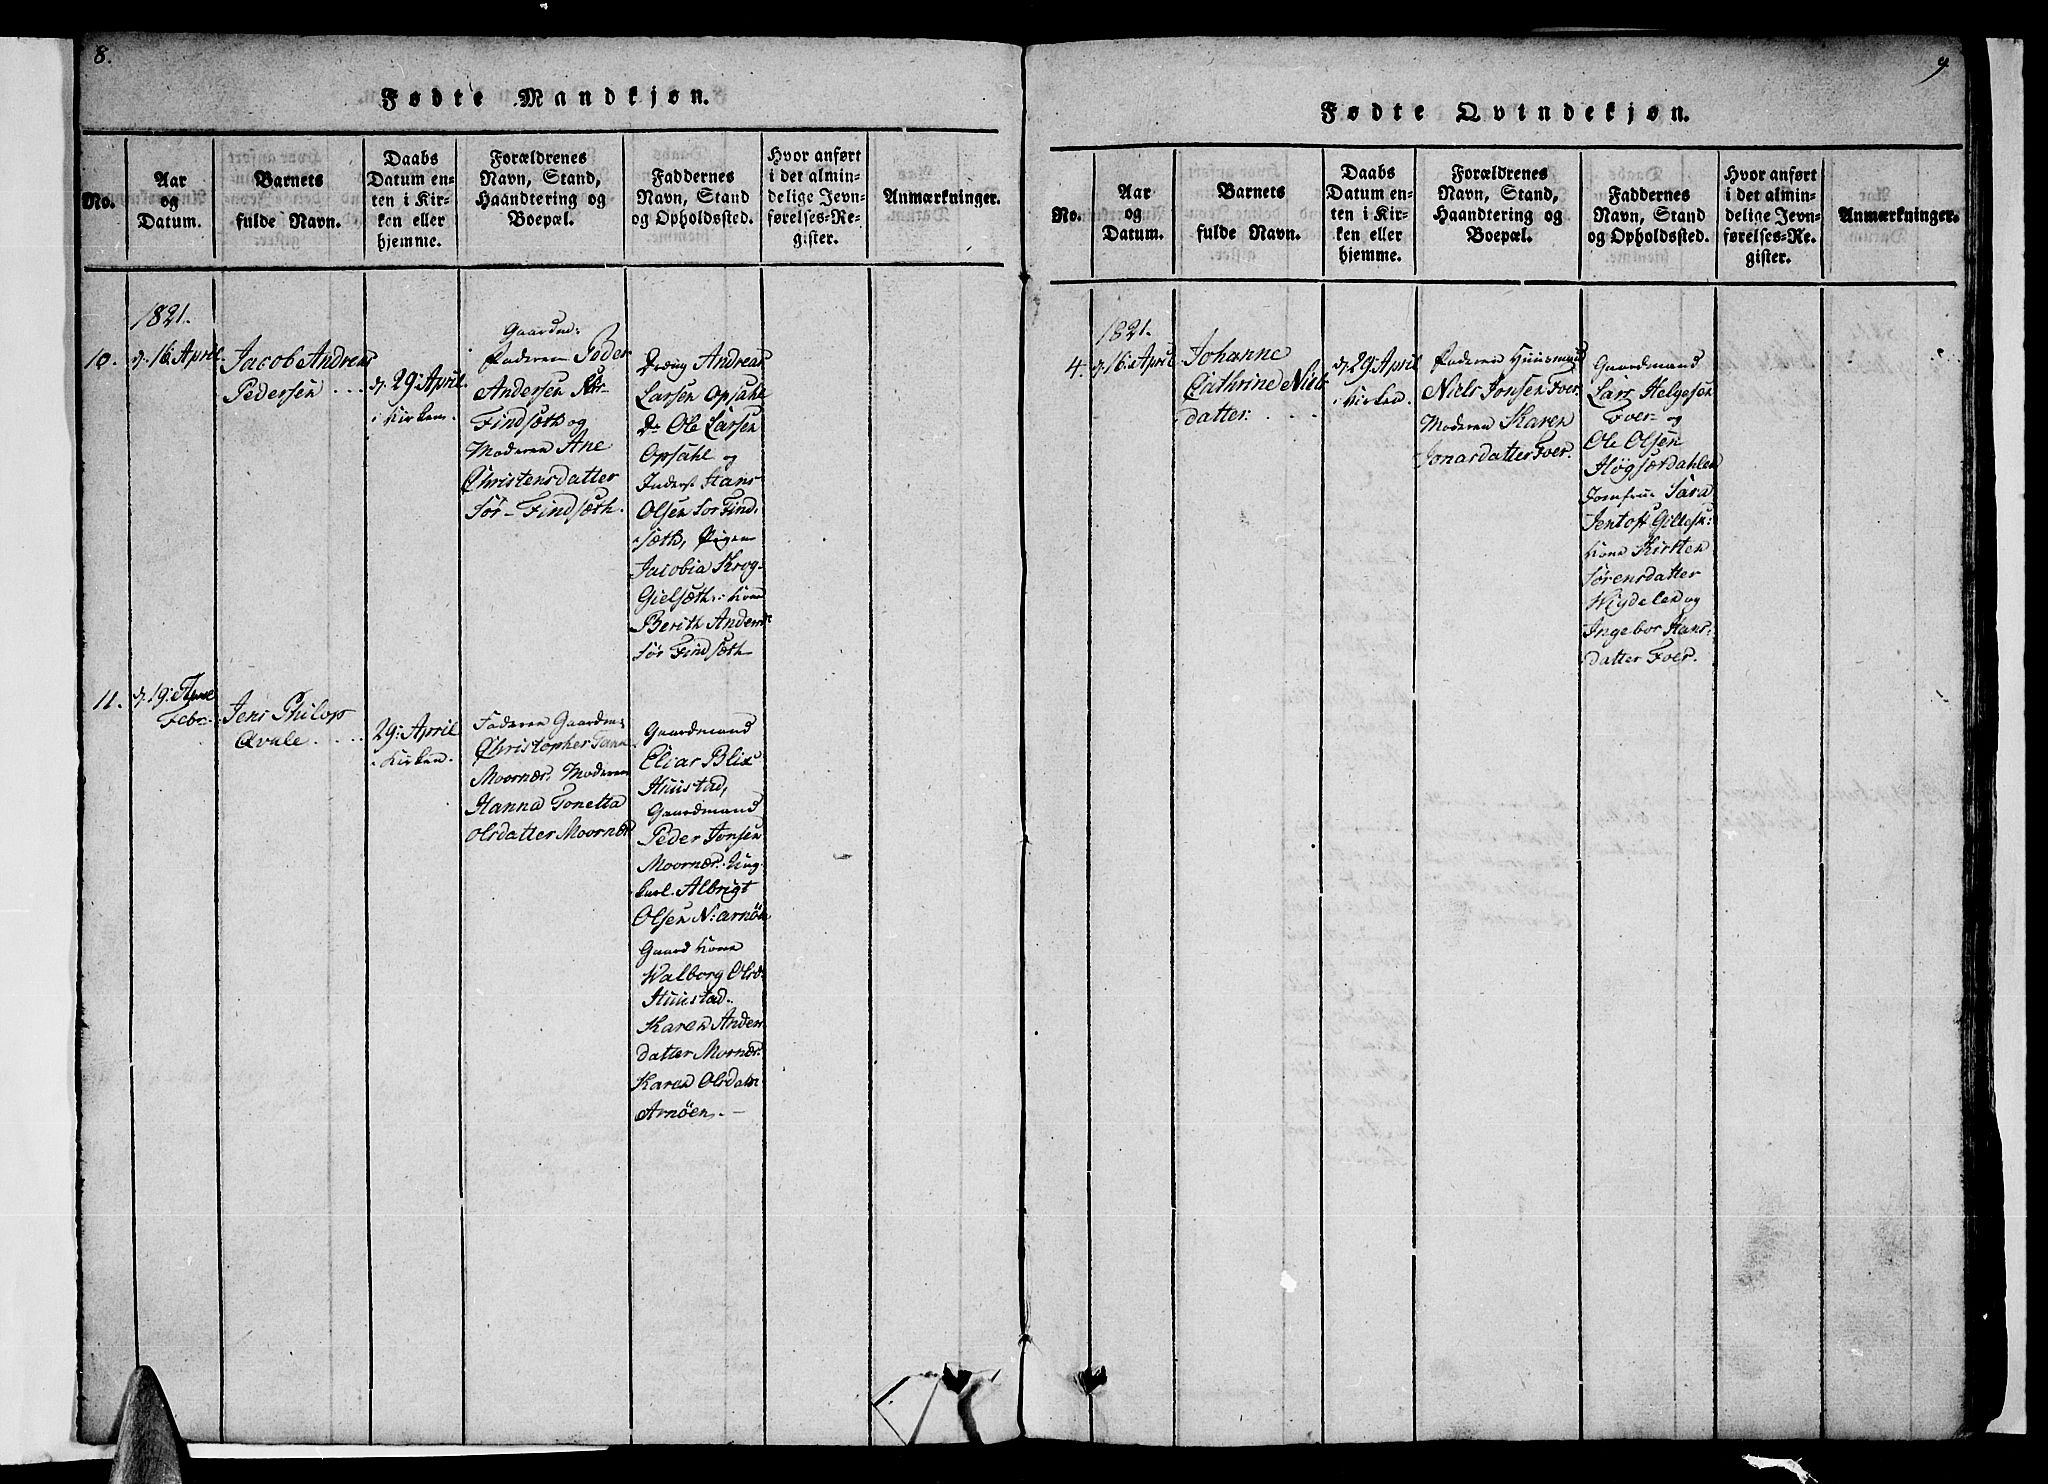 8.
Fødte Mandkjøn.
No.
Aar
og
Datum.
Barnets
fulde Navn.
Daabs
Datum en-
ten i Kir-
ken eller
hjemme.
Forældrenes
Navn, Stand,
Haandtering og
Boepæl.
Faddernes
Navn, Stand
og Opholdssted.
Hvor anført
i det almin-
delige Jevn-
førelses-Re-
gister.
Anmærkninger.
1821.
10.
d. 16 April.
Jacob Andreas
Pedersen
d. 29 April
i Kirken.
Gaardm:
Faderen Peder
Andersen Sør-
Findsæth og
Moderen Ane
Christensdatter
Sør-Findsæth.
Dreng Andreas
Larsen Opsahl
Do Ole Larsen
Opsahl og
Inderst Hans
Olsen Sør Find-
sæth, Pigen
Jacobia Krog
Gielsæth: Kone
Berith Anders
Sør Findsæth
11.
d. 19:
Febr
Jens Philop
Qvale
29: April
i Kirken.
Faderen Gaardm:
Christopher
Moornær. Moderen
Hanna Tonetta
Olsdatter Moornær
Gaardmand
Elias Blix
Huustad,
Gaardmand
Peder Jonsen
Moornær. Ung-
karl. Albrigt
Olsen N: arnöen
Gaard Kone
Walborg Olsd.
Huustad.
Karen Anders
datter Mornær.
Karen Olsdatn
Arnöen. —
9
Fødte Qvindekjøn.
No.
Aar
og
Datum.
Barnets
fulde Navn.
Daabs
Datum en-
ten i Kir-
ken eller
hjemme.
Forældrenes
Navn, Stand,
Haandtering og
Boepæl.
Faddernes
Navn, Stand
og Opholdssted.
Hvor anført
i det almin-
delige Jevn-
førelses-Re-
gister.
Anmærkninger.
1821.
4.
d. 16 April
Johanne
Cathrine Niels
datter.
d. 29 April
i Kirken.
Faderen Huusmand
Niels Jonsen Foer.
Moderen Karen
Jonasdatter Foer.
Gaardmand
Lars Helgesen
Foer og
Ole Olsen
Högsætdahlen
Jomfrue Sara
Jentoft Gildesk:
Kone Kirsten
Sörensdatter
Wigdelen og
Ingebor Hans-
datter Foer.